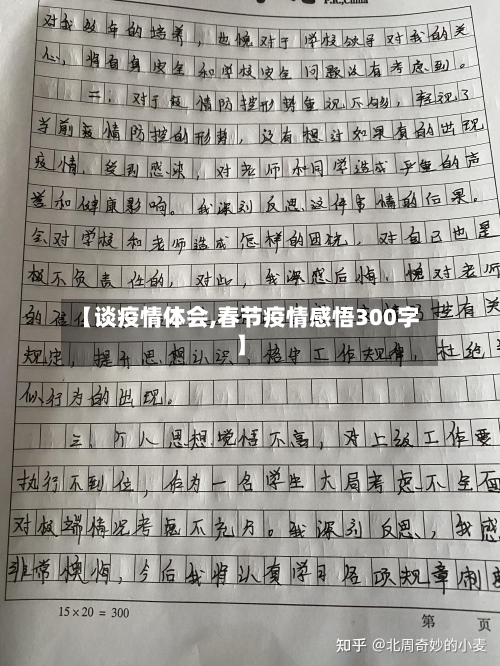 P.R.,China
对我数年的培养，也愧对于学校领导对我的关
心，将自身安全和学校安全问题没有考虑到。
二、对于疫情防控形势重视不够，轻视了
当前疫情防控的形势，没有想过如果真的出现
疫情，受到感染，对老师和同学造成严重的声
誉和健康影响。我深刻反思这件事情的后果。
会对学校和老师造成怎样的困扰，对自己也是
极不负责任的，对此，我深感后悔，愧对老师
【谈疫情体会,春节疫情感悟300字
】
规定，提升思想认识，恪守工作规律，杜绝
似行为的出现。
三、个人思想觉悟不高，对上级工作要
执行不到位，作为一名学生大局考虑不全面
对极端情况考虑不充分。我深刻反思，我感
非常懊悔，今后我将认真学习各项规章制度
15×20 = 300
第 页
知乎 @北周奇妙的小麦